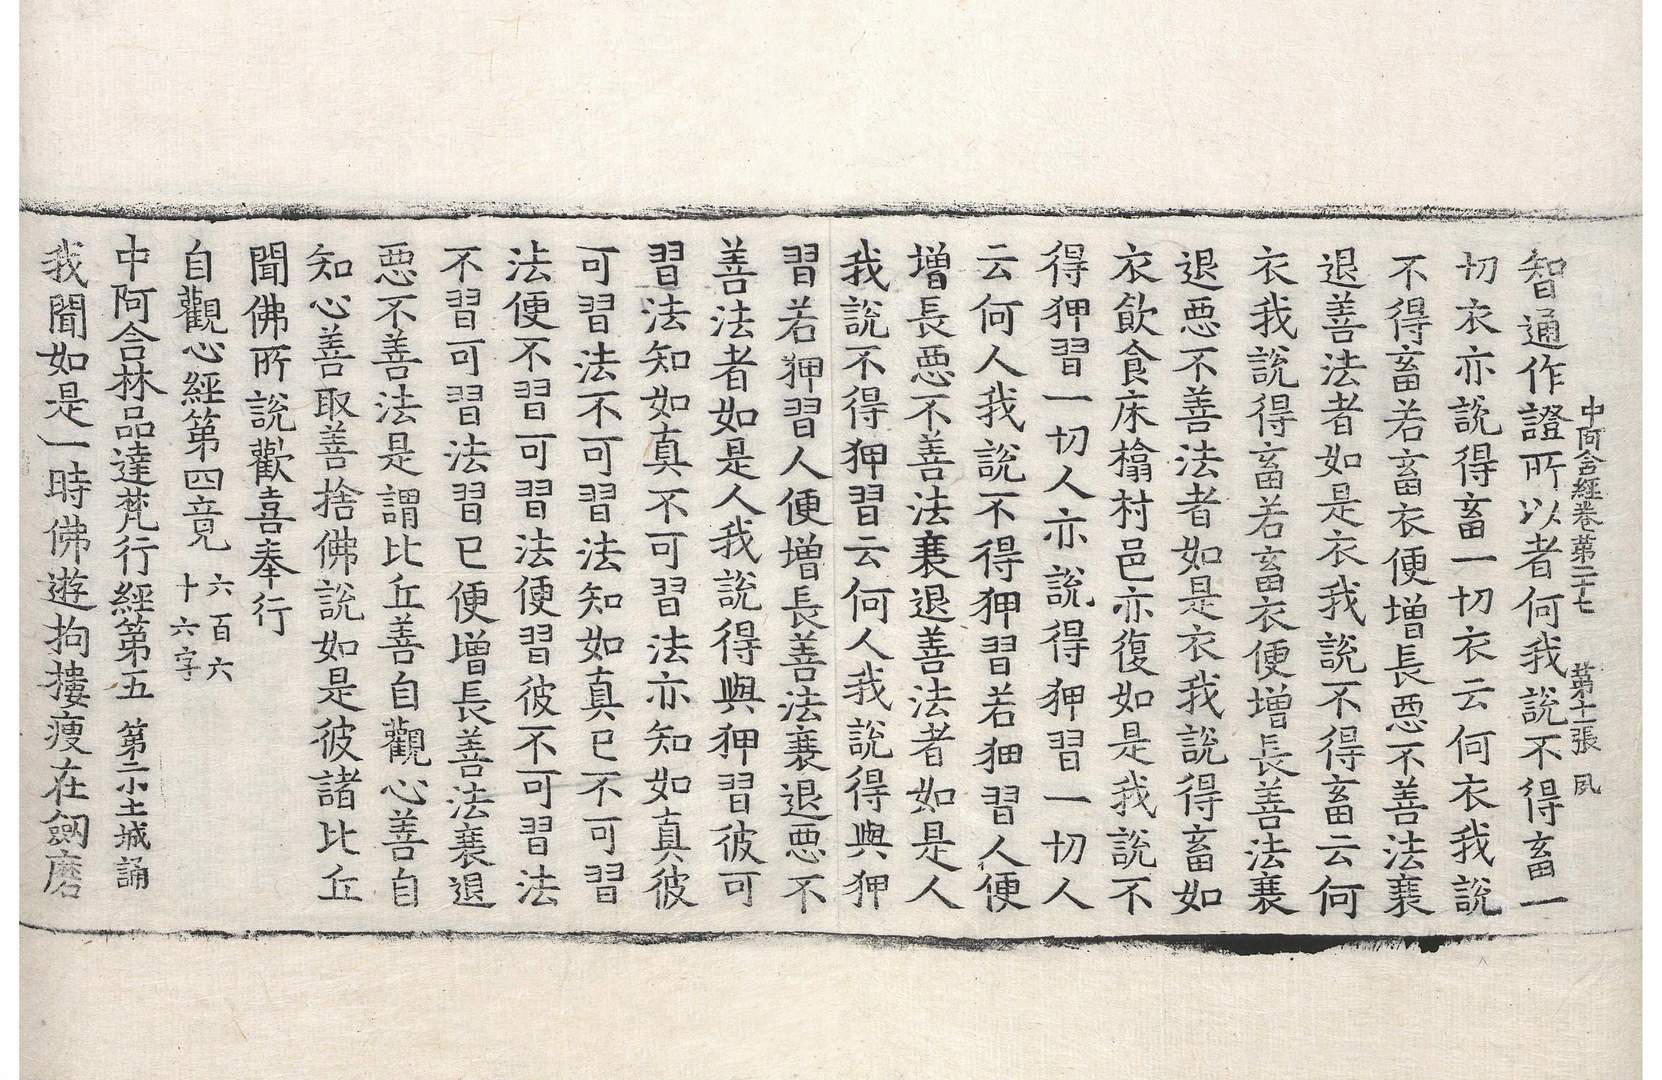 中阿含經卷第二十七 第十一張 夙
智通作證所以者何我說不得畜一
切衣亦說得畜一切衣云何衣我說
不得畜若畜衣便增長悪不善法衰
退善法者如是衣我說不得畜云何
衣我說得畜若畜衣便增長善法衰
退悪不善法者如是衣我說得畜如
衣飲食床榻村邑亦復如是我說不
得狎習一切人亦說得狎習一切人
云何人我說不得狎習若狎習人便
增長悪不善法衰退善法者如是人
我說不得狎習云何人我說得與狎
習若狎習人便增長善法衰退悪不
善法者如是人我說得與狎習彼可
習法知如真不可習法亦知如真彼
可習法不可習法知如真已不可習
法便不習可習法便習彼不可習法
不習可習法習已便增長善法衰退
悪不善法是謂比丘善自觀心善自
知心善取善捨佛說如是彼諸比丘
聞佛所說歡喜奉行
自觀心經第四竟 六百六十六字
中阿含林品達梵行經第五 第二小土城誦
我聞如是一時佛遊拘樓瘦在劒磨